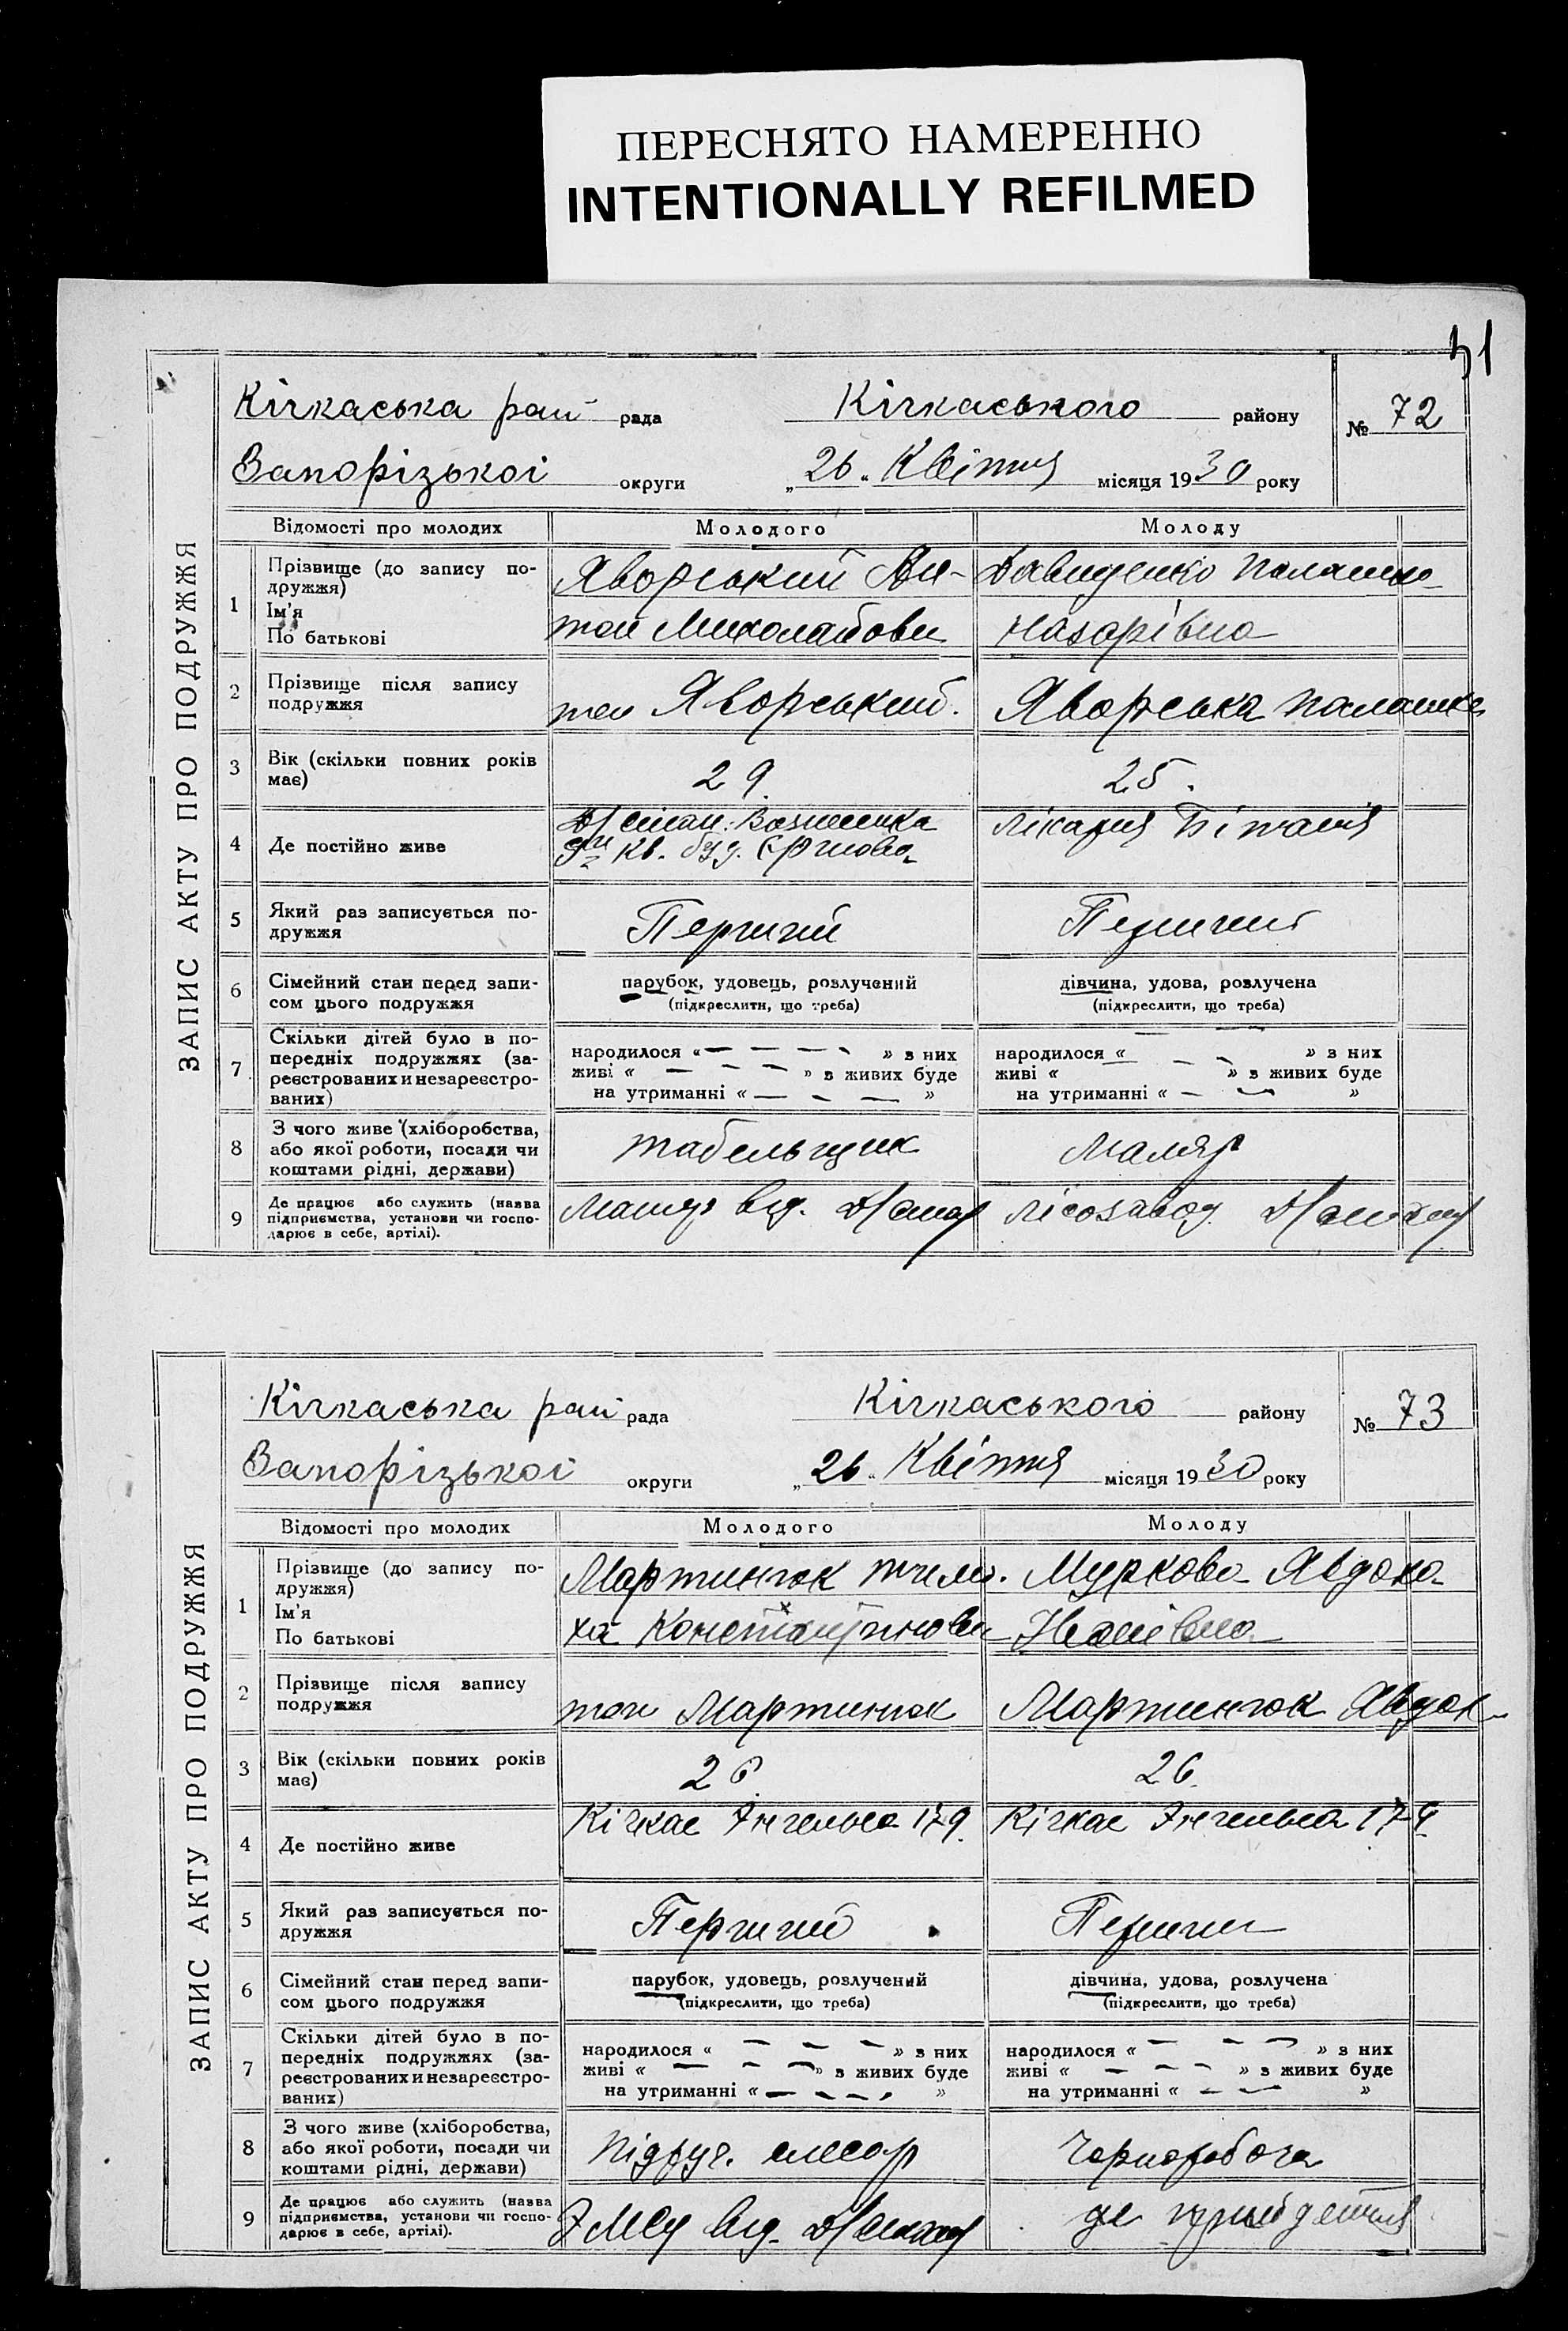 ПЕРЕСНЯТО НАМЕРЕННО
INTENTIONALLY REFILMED
ЗАПИС АКТУ ПРО ПОДРУЖЖЯ
Кічкаська рай рада Кічкаського району № 72
Запорізької округи „26“ Квітня місяця 1930 року
Відомості про молодих Молодого Молоду
1 Прізвище (до запису по-
дружжя)
Ім'я
По батькові
Яворський Ан-
тон Миколайови
Давиденко Палашка
Назарівна
2 Прізвище після запису
подружжя
Яворський.
Яворська Палашка
3 Вік (скільки повних років
має)
29.
25.
4 Де постійно живе
Вознесенка
кв. буд.
Лікарня
5 Який раз записується по-
дружжя
Перший
Перший
6 Сімейний стан перед запи-
сом цього подружжя
парубок, удовець, розлучений
(підкреслити, що треба)
дівчина, удова, розлучена
(підкреслити, що треба)
7 Скільки дітей було в по-
передніх подружжях (за-
реєстрованих и незареєстро-
ваних)
народилося « — — — » з них
живі « — — — » з живих буде
на утриманні « — — — »
народилося « — — » з них
живі « — — » з живих буде
на утриманні « — — »
8 З чого живе (хліборобства,
або якої роботи, посади чи
коштами рідні, держави)
табельщик
Маляр
9 Де працює або служить (назва
підприємства, установи чи госпо-
дарює в себе, артілі).
від.
Лісозавод
ЗАПИС АКТУ ПРО ПОДРУЖЖЯ
Кічкаська рай рада Кічкаського району № 73
Запорізької округи „26“ Квітня місяця 1930 року
Відомості про молодих Молодого Молоду
1 Прізвище (до запису по-
дружжя)
Ім'я
По батькові
Мартинюк
ха Константинови
Муркова Явдоха
Іванівна
2 Прізвище після запису
подружжя
Мартинюк
Мартинюк Явдох
3 Вік (скільки повних років
має)
26.
26.
4 Де постійно живе
Кічкас Энгельса 179.
Кічкас Энгельса 179.
5 Який раз записується по-
дружжя
Перший
Перший
6 Сімейний стан перед запи-
сом цього подружжя
парубок, удовець, розлучений
(підкреслити, що треба)
дівчина, удова, розлучена
(підкреслити, що треба)
7 Скільки дітей було в по-
передніх подружжях (за-
реєстрованих и незареєстро-
ваних)
народилося « — — — » з них
живі « — — — » з живих буде
на утриманні « — — — »
народилося « — — — » з них
живі « — — — » з живих буде
на утриманні « — — »
8 З чого живе (хліборобства,
або якої роботи, посади чи
коштами рідні, держави)
підруч. слесар
Чорноробоча
9 Де працює або служить (назва
підприємства, установи чи госпо-
дарює в себе, артілі).
від.
де прийдеться